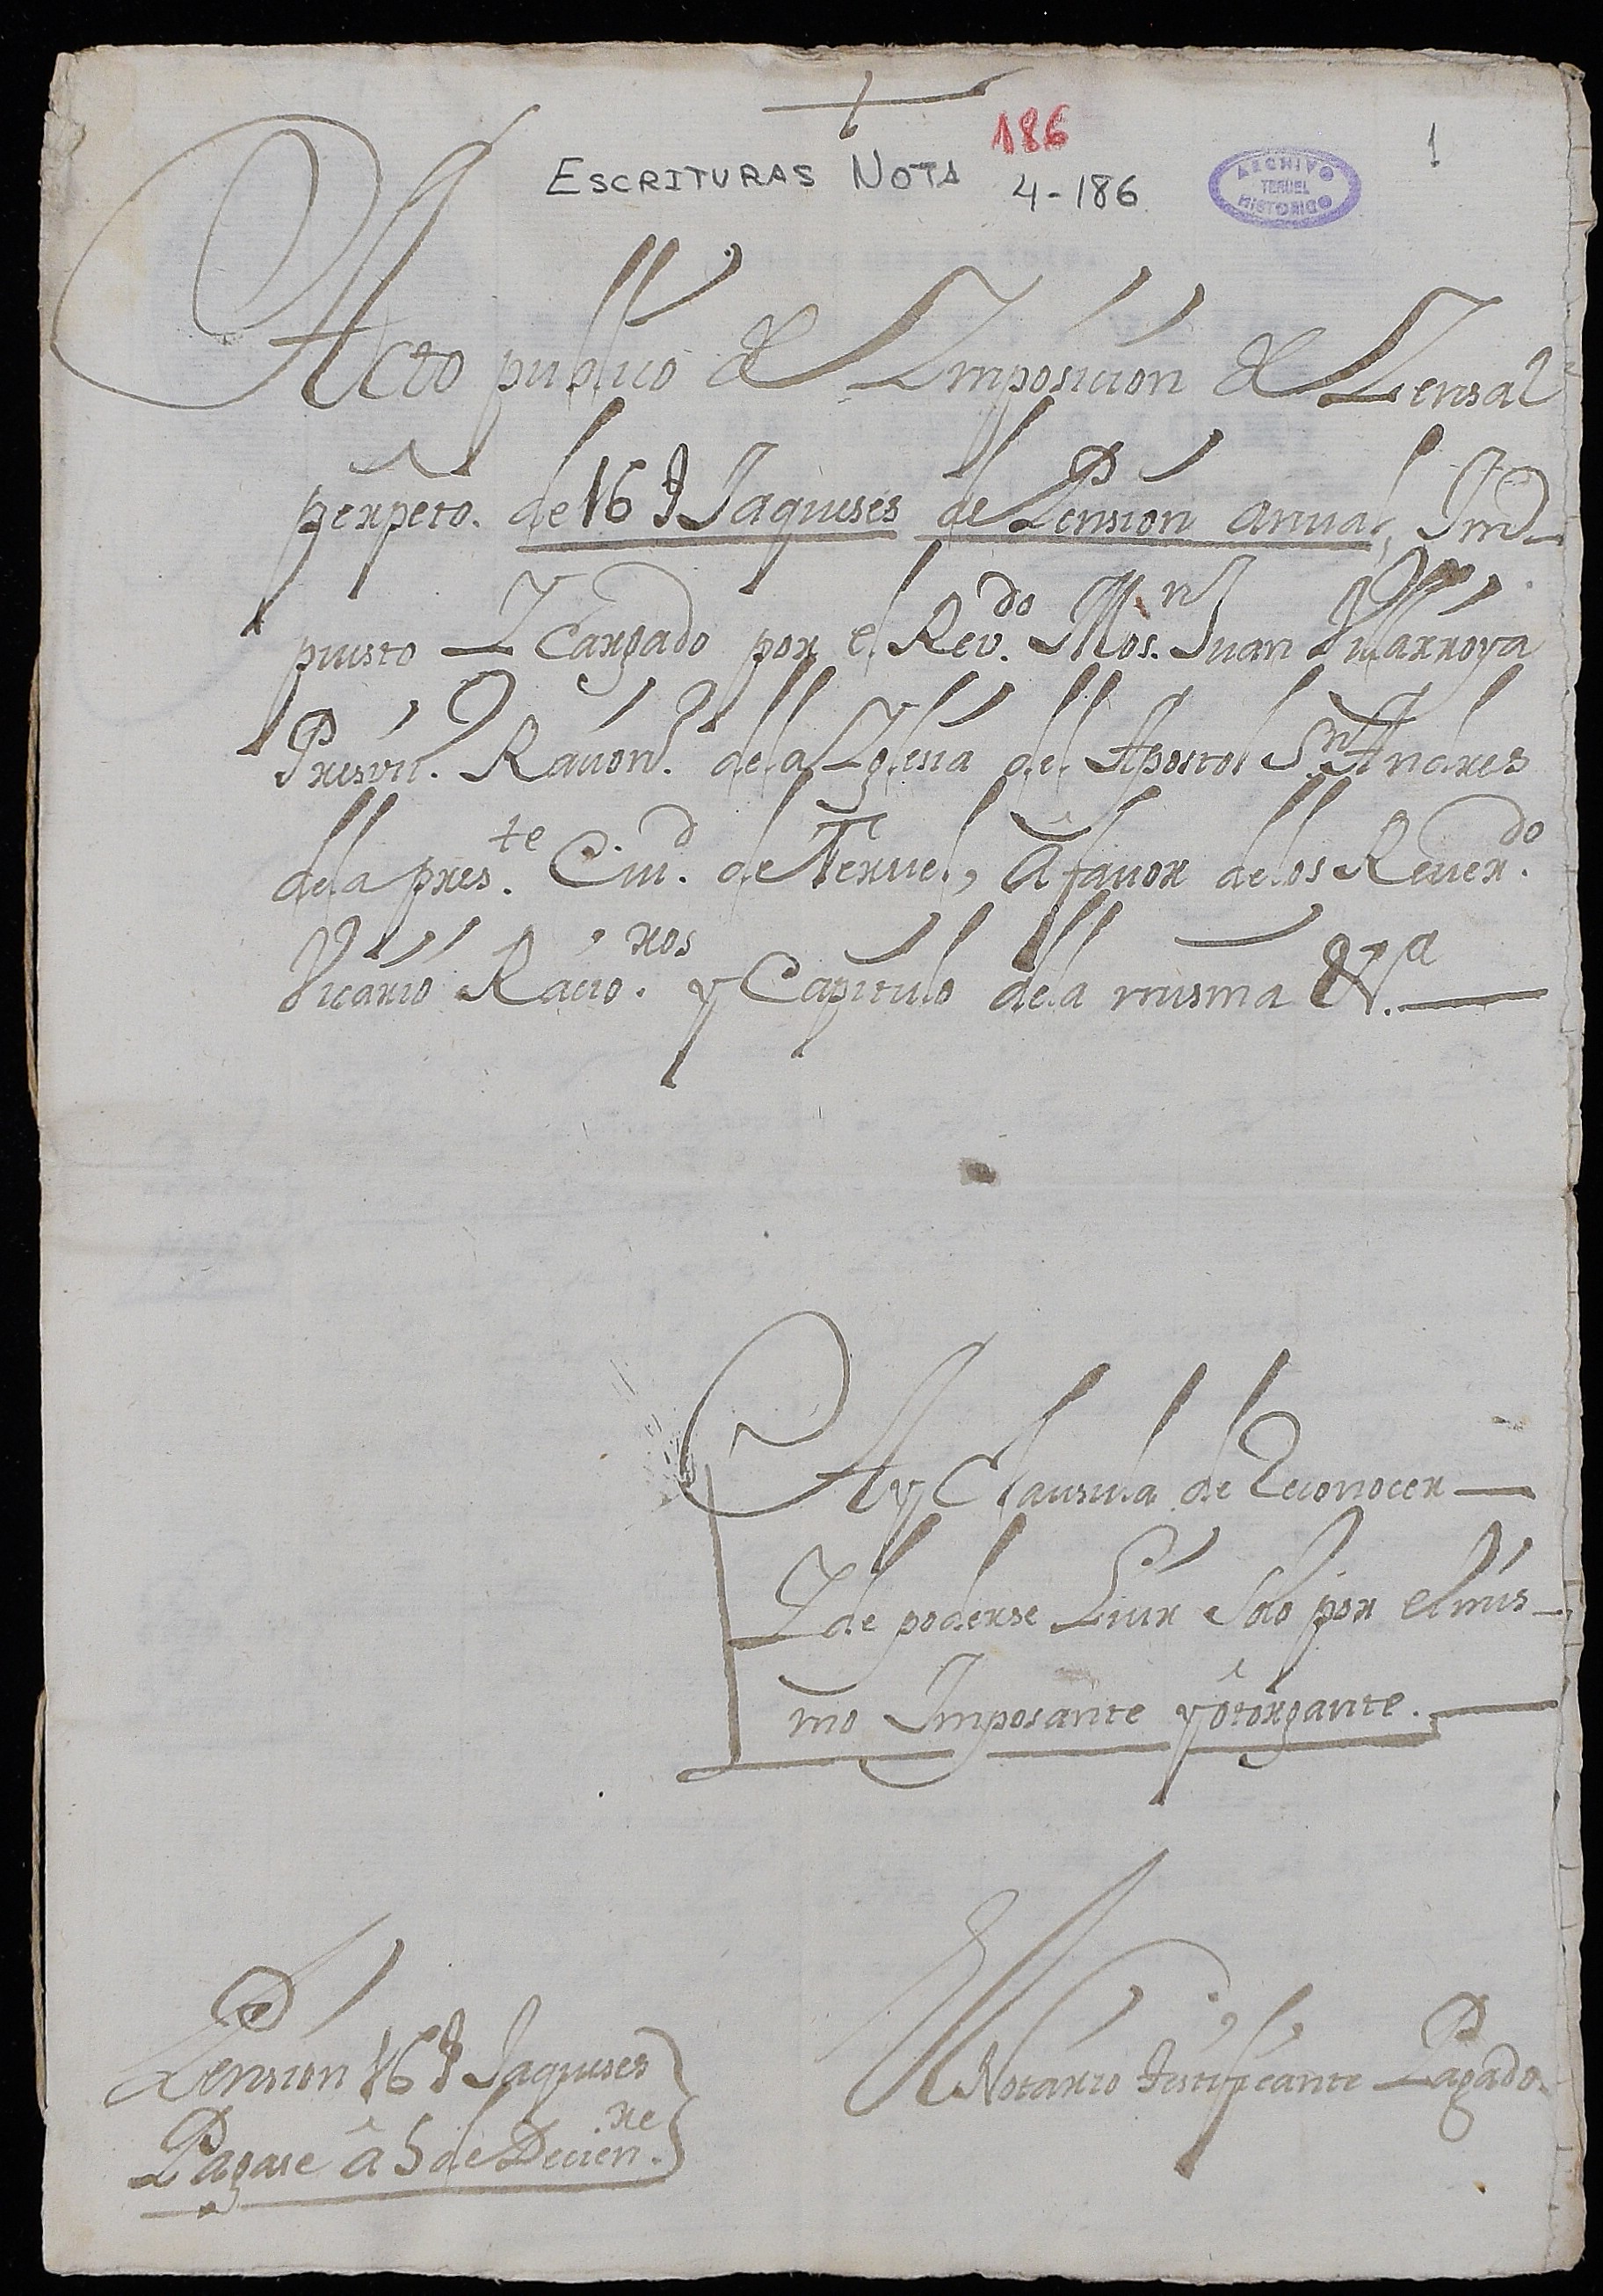 186
1
ESCRITURAS NOTA 4-186
ARCHIVO
TERUEL
HISTORICO
Acto publico de Imposicion de Zensal
perpeto. de 16 s Jaqueses de Pension anual, Im-
puesto Y Cargado por el Rev.do Mos.n Juan Villarroya
Presvit. Racion. dela Iglesia del Apostol S.n Andres
dela pres.te Ciu.d de Teruel, â favor delos Reuer.do
Vicario Racio.nos y Capitulo dela misma &.a
Ay Clausula de Reconocer
Y de poderse Luir Solo por el mis-
mo Imposante y ôtorgante.
Pension 16 s Jaqueses
Pagase â 5 de Decien.re
Notario testificante Pagado.